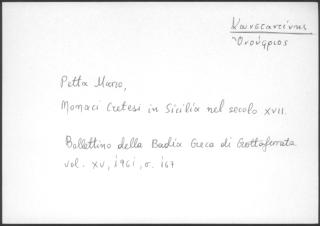 Κωνσταντίνης
Ὀνούφριος
Petta Marco,
Monaci Cretesi in Sicilia nel secolo XVII.
Bollettino della Badia Greca di Grottaferrata
vol. XV, 1961, σ. 167